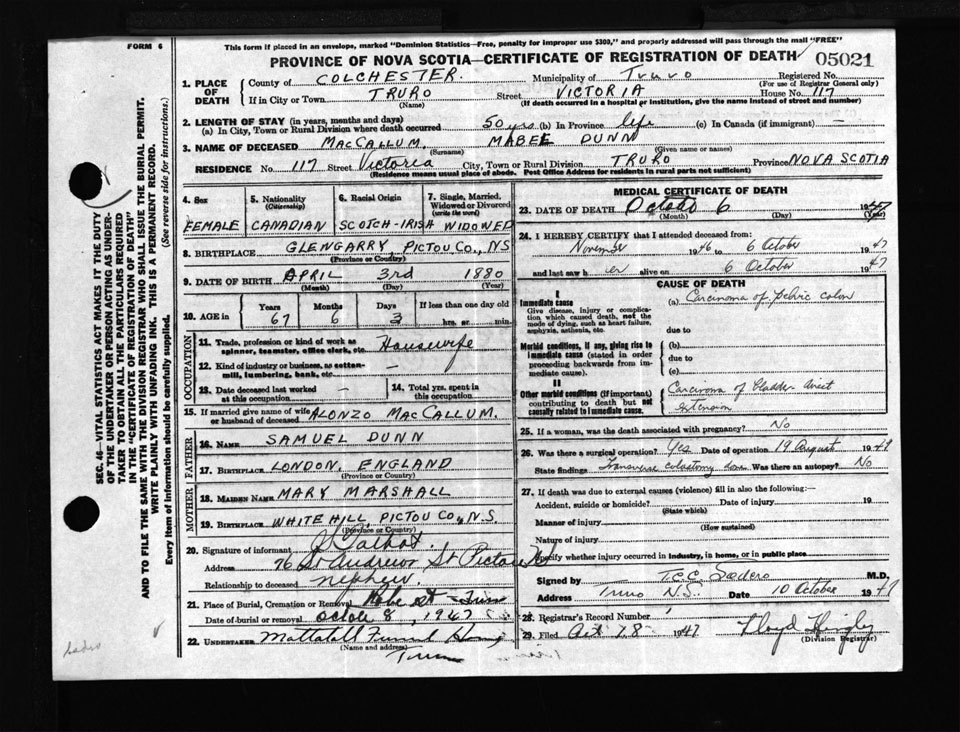 FORM 6
This form if placed in an envelope, marked "Dominion Statistics—Free, penalty for improper use $300," and properly addressed will pass through the mail "FREE"
PROVINCE OF NOVA SCOTIA—CERTIFICATE OF REGISTRATION OF DEATH
05021
SEC. 46—VITAL STATISTICS ACT MAKES IT THE DUTY
OF THE UNDERTAKER OR PERSON ACTING AS UNDER-
TAKER TO OBTAIN ALL THE PARTICULARS REQUIRED
IN THE "CERTIFICATE OF REGISTRATION OF DEATH"
AND TO FILE THE SAME WITH THE DIVISION REGISTRAR WHO SHALL ISSUE THE BURIAL PERMIT.
WRITE PLAINLY WITH UNFADING INK. THIS IS A PERMANENT RECORD.
Every item of Information should be carefully supplied. (See reverse side for instructions.)
1. PLACE OF DEATH
County of COLCHESTER. Municipality of Truro Registered No.
(For use of Registrar General only)
If in City or Town TRURO Street VICTORIA House No. 117
(Name) (If death occurred in a hospital or institution, give the name instead of street and number)
2. LENGTH OF STAY (in years, months and days)
(a) In City, Town or Rural Division where death occurred 50 yrs (b) In Province life (c) In Canada (if immigrant) —
3. NAME OF DECEASED MACCALLUM. MABEL DUNN
(Surname) (Given name or names)
RESIDENCE No. 117 Street Victoria City, Town or Rural Division TRURO Province NOVA SCOTIA
(Residence means usual place of abode. Post Office Address for residents in rural parts not sufficient)
4. Sex FEMALE
5. Nationality (Citizenship) CANADIAN
6. Racial Origin SCOTCH-IRISH
7. Single, Married, Widowed or Divorced (write the word) WIDOWED
8. BIRTHPLACE GLENGARRY PICTOU Co., NS
(Province or Country)
9. DATE OF BIRTH APRIL 3rd 1880
(Month) (Day) (Year)
10. AGE in Years 67 Months 6 Days 3 If less than one day hrs. or min.
OCCUPATION
11. Trade, profession or kind of work as spinner, teamster, office clerk, etc. Housewife
12. Kind of industry or business, as cotton-mill, lumbering, bank, etc. —
13. Date deceased last worked at this occupation —
14. Total yrs. spent in this occupation
15. If married give name of wife or husband of deceased ALONZO MACCALLUM.
FATHER
16. NAME SAMUEL DUNN
17. BIRTHPLACE LONDON, ENGLAND
(Province or Country)
MOTHER
18. MAIDEN NAME MARY MARSHALL
19. BIRTHPLACE WHITE HILL, PICTOU Co., N.S.
(Province or Country)
20. Signature of informant J. Talbot
Address 76 St Andrews St Pictou
Relationship to deceased nephew.
21. Place of Burial, Cremation or Removal
Date of burial or removal October 8, 1947
22. UNDERTAKER Mattatall Funeral Home
(Name and address)
Truro
MEDICAL CERTIFICATE OF DEATH
23. DATE OF DEATH October 6 1947
(Month) (Day) (Year)
24. I HEREBY CERTIFY that I attended deceased from:
November 1946 to 6 October 1947
and last saw h er alive on 6 October 1947
CAUSE OF DEATH
I
Immediate cause (a) Carcinoma of pelvic colon
Give disease, injury or complication which caused death, not the mode of dying, such as heart failure, asphyxia, asthenia, etc.
due to
Morbid conditions, if any, giving rise to immediate cause (stated in order proceeding backwards from immediate cause).
(b)
due to
(c)
II
Other morbid conditions (if important) contributing to death but not causally related to immediate cause.
Carcinoma of bladder direct
extension
25. If a woman, was the death associated with pregnancy? No
26. Was there a surgical operation? Yes Date of operation 19 August 1947
State findings Transverse colostomy done Was there an autopsy? No
27. If death was due to external causes (violence) fill in also the following:—
Accident, suicide or homicide? Date of injury 19
(State which)
Manner of injury
(How sustained)
Nature of injury
Specify whether injury occurred in industry, in home, or in public place
Signed by M.D.
Address Truro N.S. Date 10 October 1947
28. Registrar's Record Number
29. Filed Oct 28 1947 Lloyd
(Division Registrar)